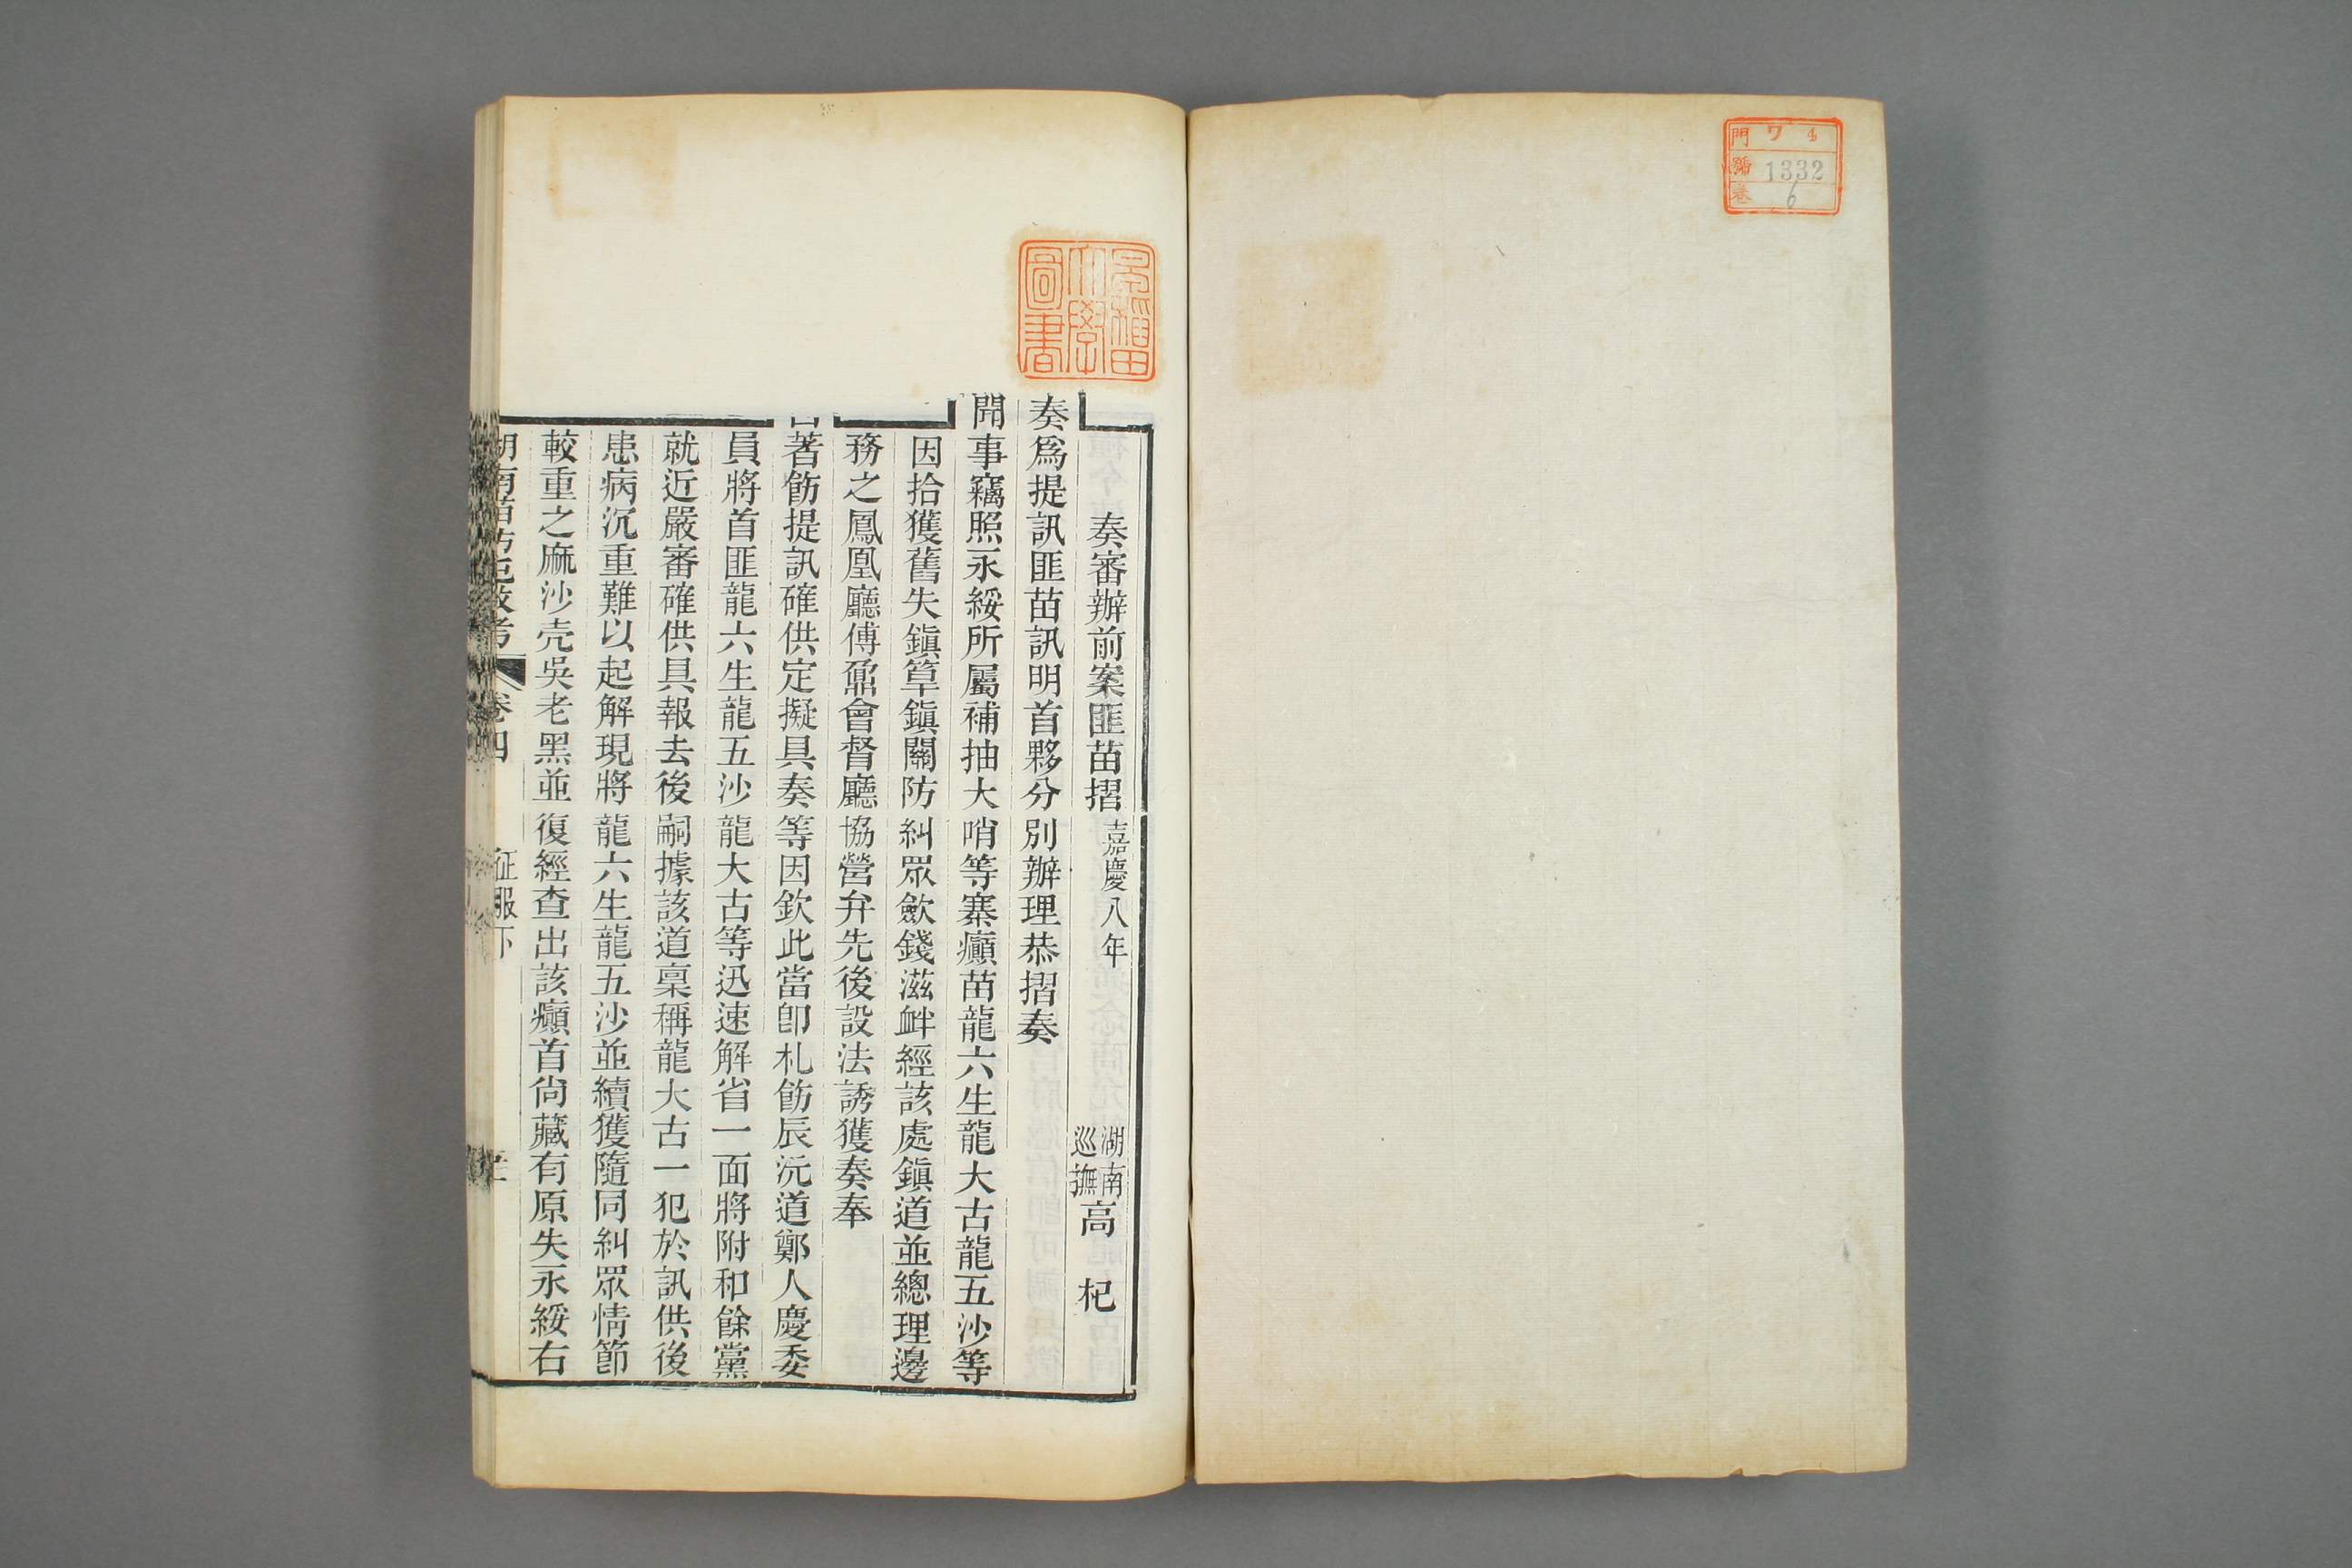 門 ワ 4
號 1332
卷 6
早稲田大學圖書
奏審辦前案匪苗摺 嘉慶八年 湖南巡撫 高杞
奏爲提訊匪苗訊明首夥分別辦理恭摺奏
聞事竊照永綏所屬補抽大哨等寨癲苗龍六生龍大古龍五沙等
因拾獲舊失鎮筸鎮關防糾眾歛錢滋衅經該處鎮道並總理邊
務之鳳凰廳傅鼐會督廳協營弁先後設法誘獲奏奉
著飭提訊確供定擬具奏等因欽此當卽札飭辰沅道鄭人慶委
員將首匪龍六生龍五沙龍大古等迅速解省一面將附和餘黨
就近嚴審確供具報去後嗣據該道稟稱龍大古一犯於訊供後
患病沉重難以起解現將龍六生龍五沙並續獲隨同糾眾情節
較重之麻沙壳吳老黑並復經查出該癲首尙藏有原失永綏右
湖南苗防屯政考 卷四 征服下